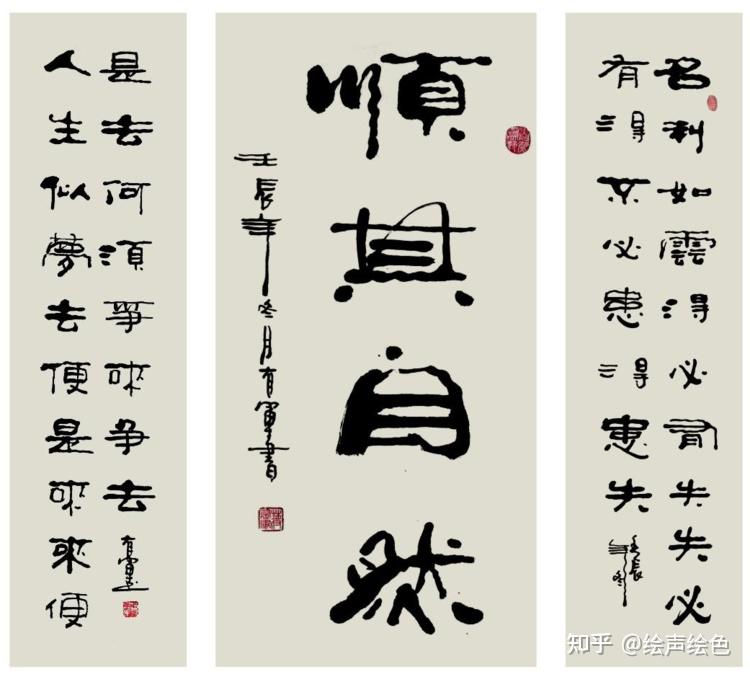 名利如雲得必有失失必
有得不必患得患失
壬辰
年冬
順其自然
壬辰年冬月有軍書
人生似夢去便是來來便
是去何須爭來争去
知乎 @绘声绘色